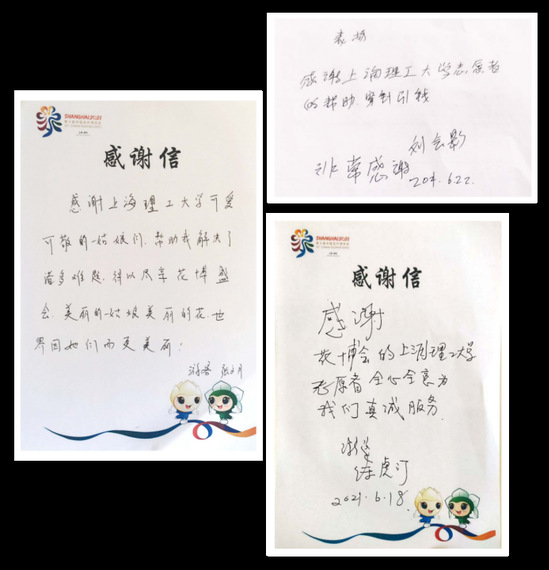 SHANGHAI 2021
感谢信
感谢上海理工大学可爱
可敬的姑娘们，帮助我解决了
诸多难题，得以尽享花博盛
会美丽的姑娘美丽的花，世
界因她们而更美丽！
游客
表扬
感谢上海理工大学志愿者
的帮助，穿针引线
非常感谢
2021.6.22.
SHANGHAI 2021
感谢信
感谢
花博会的上海理工大学
志愿者全心全意为
我们真诚服务.
游客
2021.6.18.